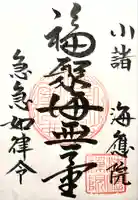 小諸 海應院
福聚海無量
急急如律令